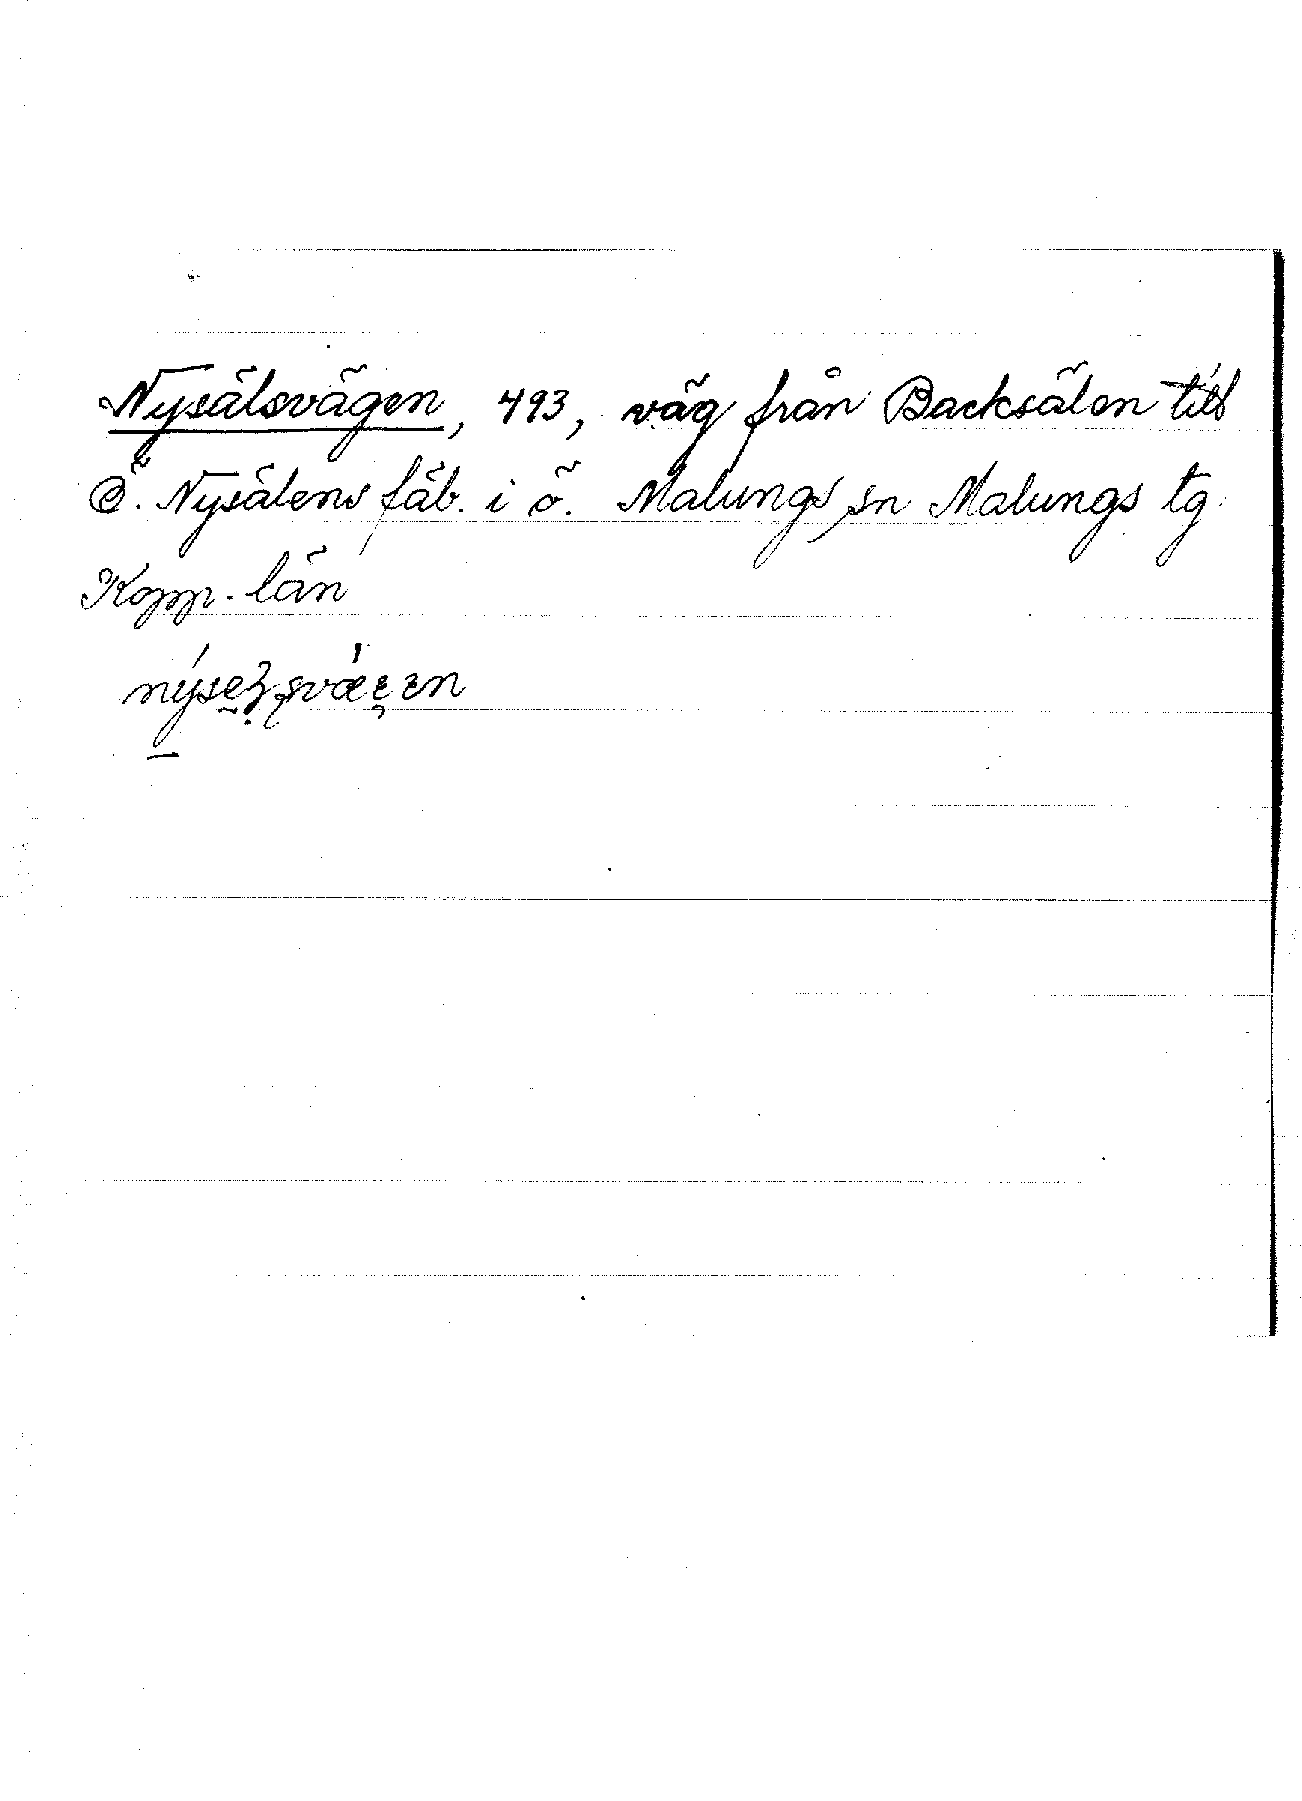 Nysälsvägen, 493, väg från Backsälen till
Ö. Nysälens fäb. i ö. Malungs sn Malungs tg.
Kopp. län